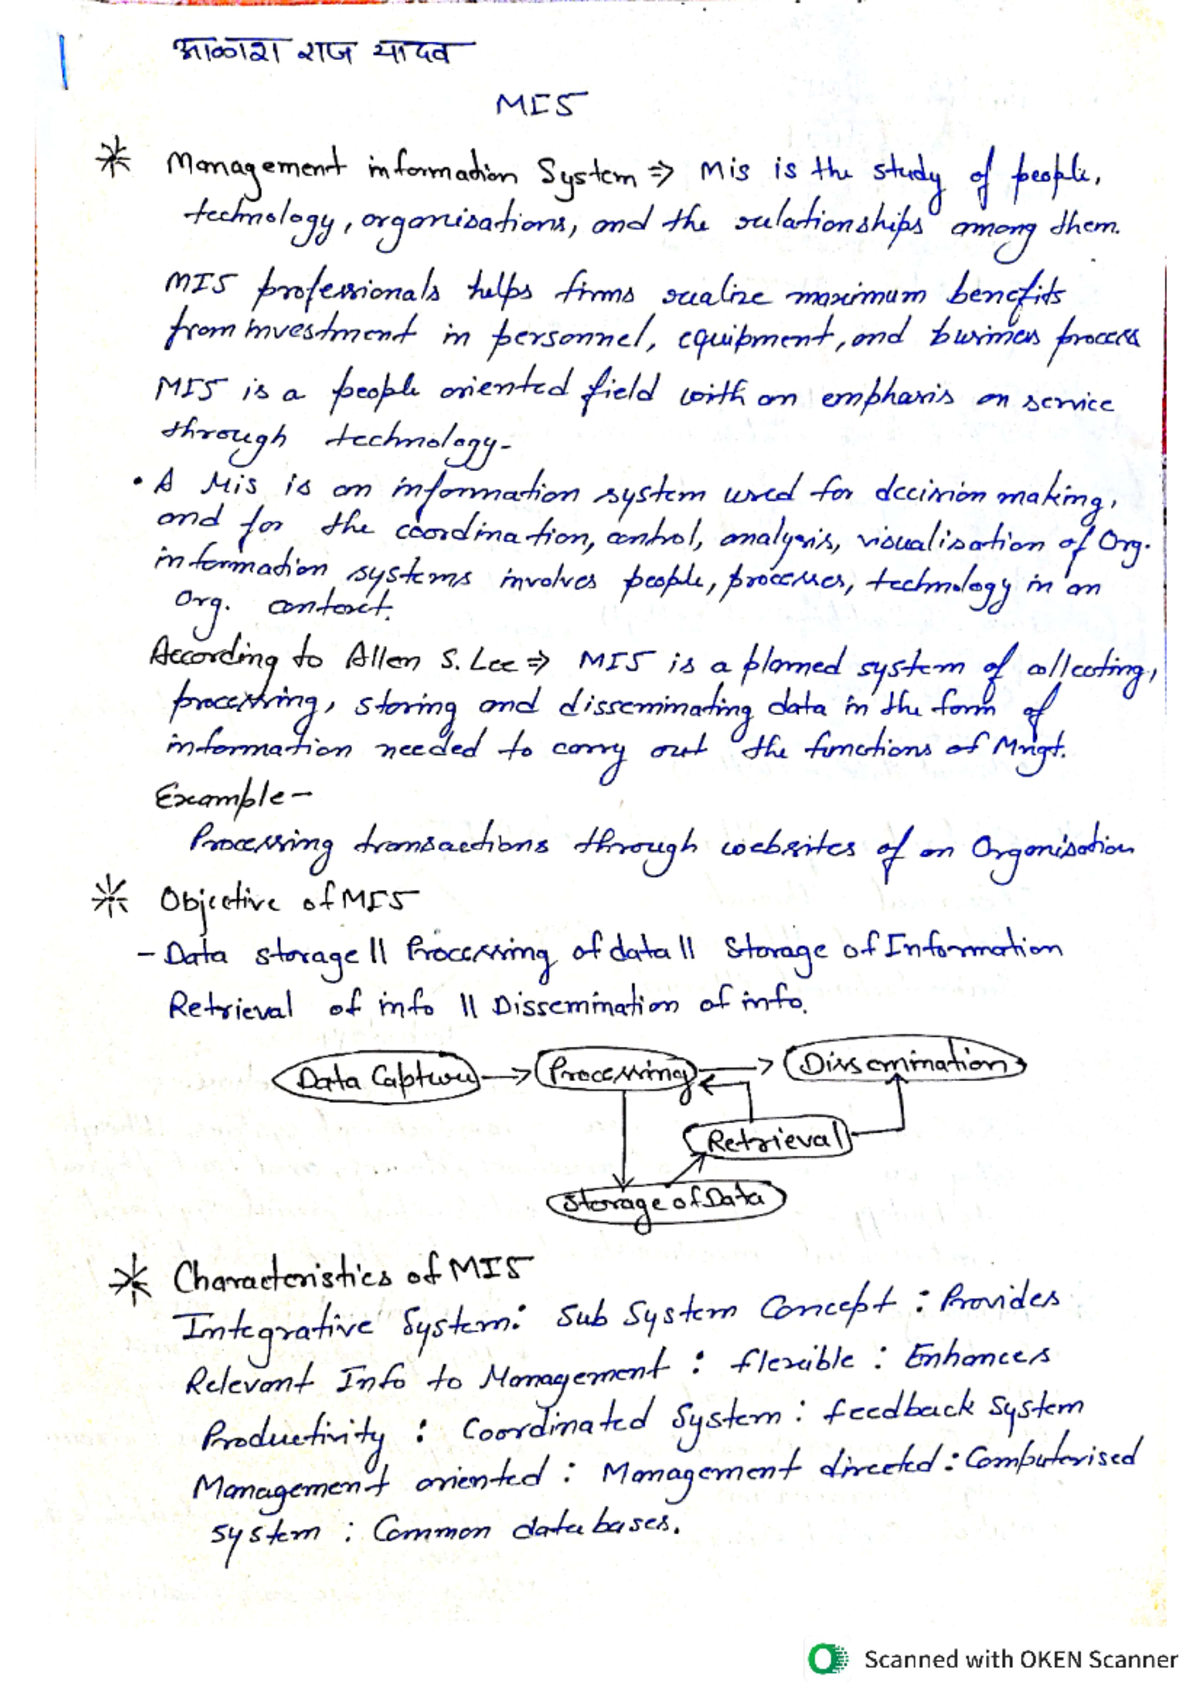 आकाश राज यादव
MIS
* Management information System ⇒ Mis is the study of people,
technology, organisations, and the relationships among them.
MIS professionals helps firms realize maximum benefits
from investment in personnel, equipment, and business process
MIS is a people oriented field with an emphasis on service
through technology-
• A Mis is an information system used for decision making,
and for the coordination, control, analysis, visualisation of Org.
information systems involves people, processes, technology in an
Org. context.
According to Allen S. Lee ⇒ MIS is a planned system of collecting,
processing, storing and disseminating data in the form of
information needed to carry out the functions of Mngt.
Example-
Processing transactions through websites of an Organisation
* Objective of MIS
- Data storage || Processing of data || Storage of Information
Retrieval of info || Dissemination of info.
Data Capture → Processing → Dissemination
Retrieval
Storage of Data
* Characteristics of MIS
Integrative System: Sub System Concept : Provides
Relevant Info to Management : flexible : Enhances
Productivity : Coordinated System : feedback system
Management oriented : Management directed : Computerised
system : Common databases.
Scanned with OKEN Scanner